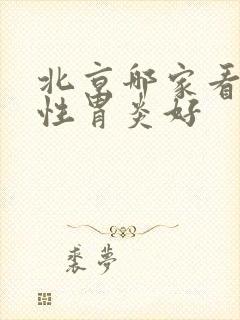 北京哪家看
性胃炎好
裘夢